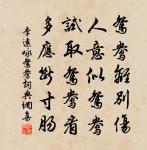 鴛鴦離別傷
人意似鴛鴦
試取鴛鴦看
多應斷寸腸
李遠詠鴛鴦詞典網集